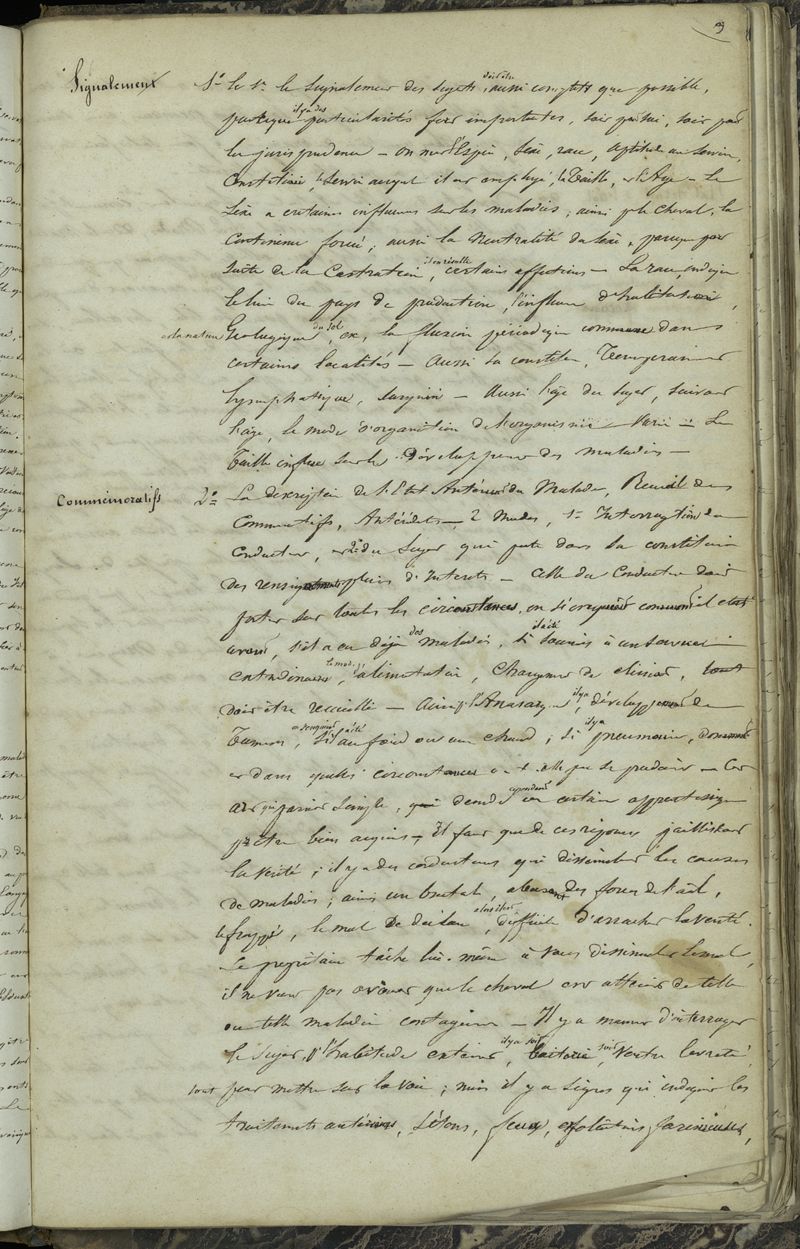 3
Signalement 1° Le 1er le Signalement des Sujets, doit être aussi complet que possible,
parceque il y a des particularités fort importantes, soit soit par
la jurisprudence — on met l'Espèce, Sexe, race, aptitude au Service,
le Service auquel il est employé, la Taille, et l'Age — Le
Sexe a certaines influences sur les maladies, ainsi le cheval, la
Continence forcée, aussi la Neutralité du Sexe, parceque par
Suite de la Castration, il en résulte certaines affections — La race indique
le lieu du pays de production, l'influence d'habitation,
et la nature Géologique du Sol, ex, la fluxion périodique commune dans
certaines localités — Aussi la constitution, Tempérament
lymphatique, Sanguin — Aussi l'age du Sujet, suivant
l'age, le mode d'organisation de l'organisme varie — La
Taille influe sur le développement des maladies —
Commémoratifs 2° La description de l'Etat Antérieur du Malade, Recueil des
Commemoratifs, Antécédents — 2 Modes, 1er Interrogation du
Conducteur, et 2e du Sujet qui porte dans sa constitution
des renseignements pleins d'Interets — Celle du Conducteur doit
porter sur toutes les circonstances, on s'enquiert comment il était
avant, s'il a eu déjà des maladies, s'il a été soumis à un travail
extraordinaire, le mode d'alimentation, Changement de climat, tout
doit être recueilli — Ainsi l'Anasarque, il y a développement de
Tumeurs, s'il a été au froid ou au chaud; si il y a pneumonie,
et dans quelles circonstances a-t-elle pu se produire — Cet
Art qui parait Simple, qui demande cependant un certain apprentissage
pr être bien acquis — Il faut que de ces réponses jaillissent
la vérité; il y a des conducteurs qui dissimulent les causes
de maladies; ainsi un brutal, abusant des forces de l'anl,
le frappe, le mal se déclare, alors il est difficile d'arracher la vérité.
Le propriétaire tâche lui-même à vous dissimuler le mal,
il ne veut pas avouer que le cheval est atteint de telle
ou telle maladie contagieuse — Il y a manière d'interroger
le Sujet, l'habitude extérieure, il y a soit boiterie, soit Ventre levreté,
tout peut mettre sur la voie; mais il y a signes qui indiquent les
traitements antérieurs, Sétons, feux, exfoliations farineuses,